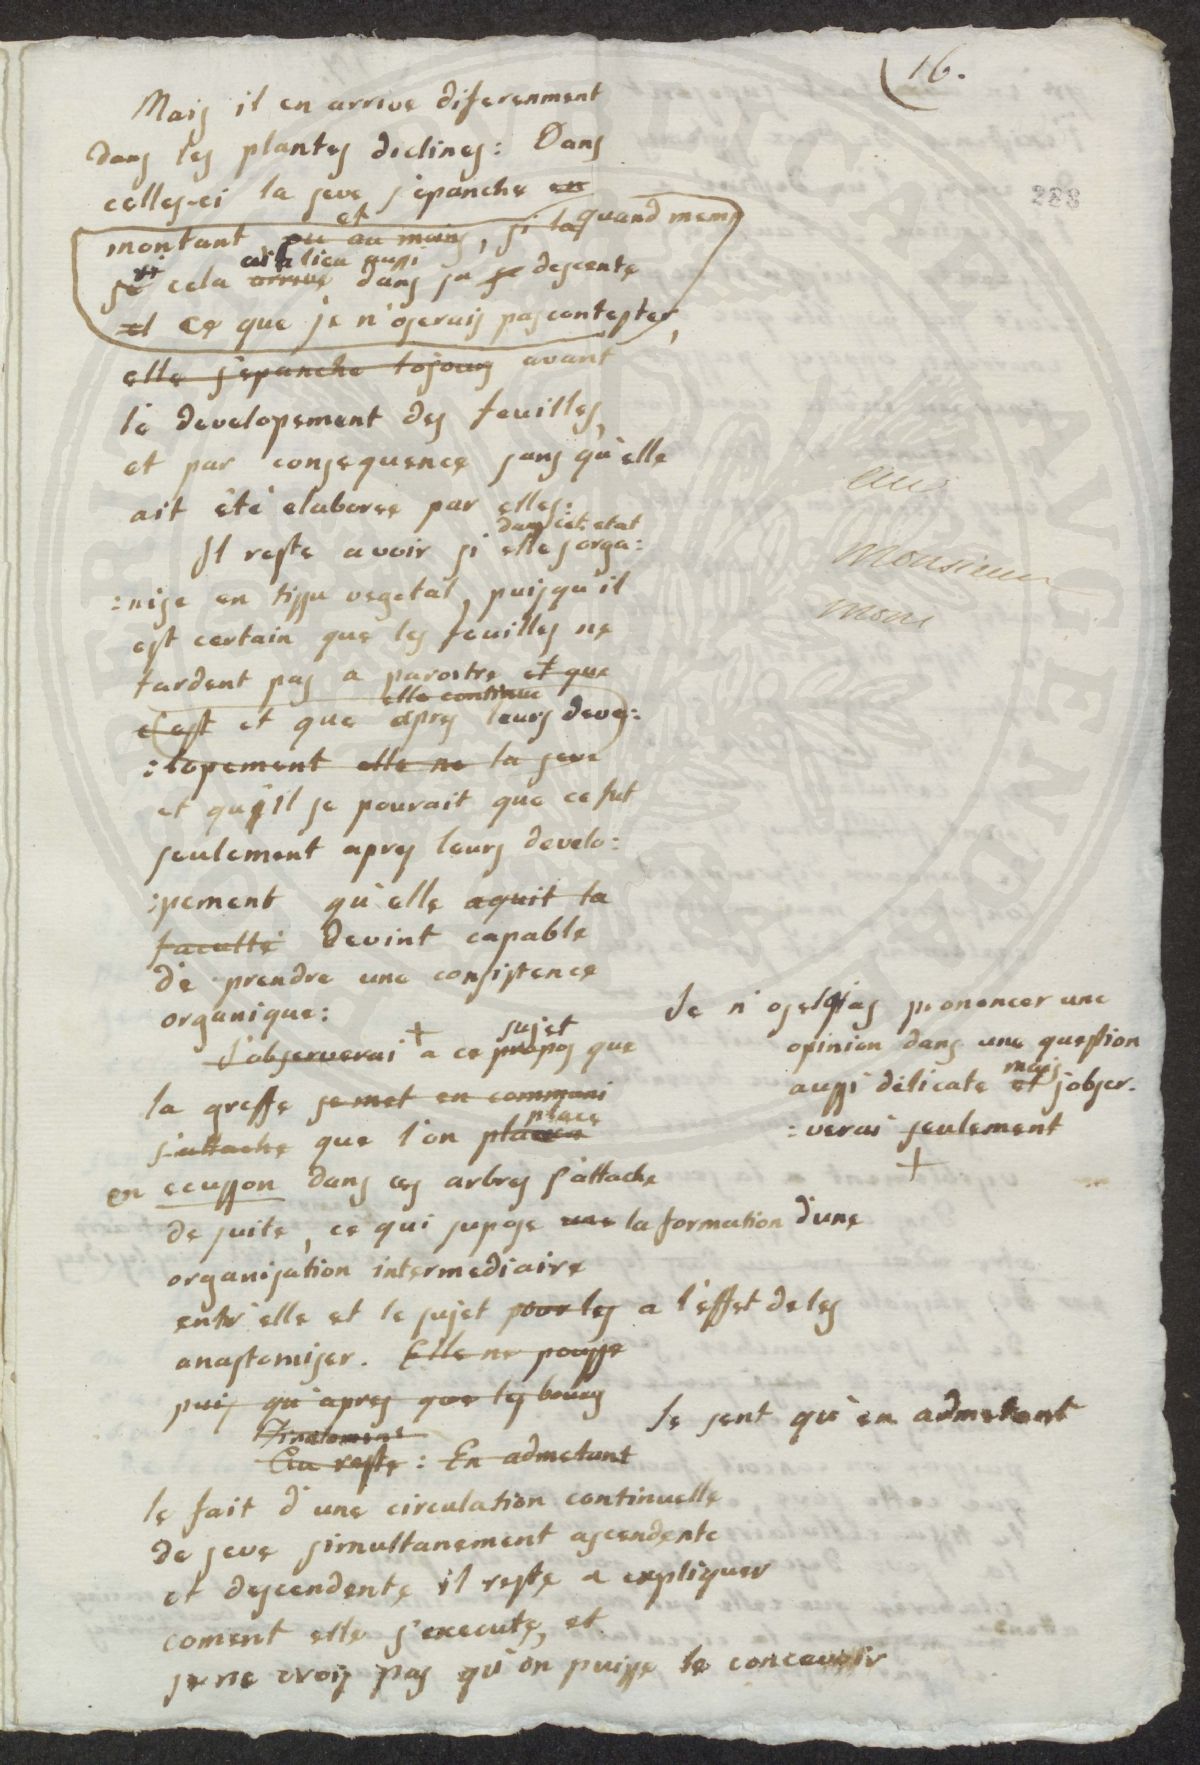 16.
288
Mais il en arrive diferenment
dans les plantes diclines: Dans
celles-ci la seve s'epanche en
montant et ou au moins, si la quand meme
si cela a lieu aussi arrive dans sa se descente
il ce que je n'oserais pas contester,
elle s'epanche tojours avant
le developement des feuilles,
et par consequence sans qu'elle
ait été elaboree par elles:
Il reste a voir si dans cet etat elle s'orga:
:nise en tissu vegetal, puisqu'il
est certain que les feuilles ne
tardent pas a paroitre et que
c'est et que elle continue apres leurs deve:
:lopement elle ne la seve
et qu'il se pourait que ce fut
seulement apres leurs develo:
:pement qu'elle aquit la
faculté devint capable
de prendre une consistence
organique:
J'observerai + a ce sujet propos que
la greffe se met en communi
s'attache que l'on place
en ecusson dans ces arbres s'attache
de suite, ce qui supose une la formation d'une
organisation intermediaire
entr'elle et le sujet pour les a l'effet de les
anastomiser. Elle ne pousse
puis qu'apres que les bourg
Finalement
Au reste: En admetant
le fait d'une circulation continuelle
de seve simultanement ascendente
et descendente il reste a expliquer
coment elle s'execute, et
je ne crois pas qu'on puisse le concevoir
aus
Monsieur
mons
Je n'ose pas prononcer une
opinion dans une question
aussi délicate et mais j'obser.
:verai seulement
+
Je sent qu'en admetant